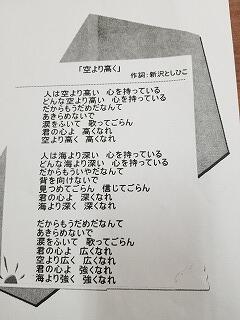 「空より高く」
作詞：新沢としひこ
人は空より高い　心を持っている
どんな空より高い　心を持っている
だからもうだめだなんて
あきらめないで
涙をふいて　歌ってごらん
君の心よ　高くなれ
空より高く　高くなれ
人は海より深い　心を持っている
どんな海より深い　心を持っている
だからもういやだなんて
背を向けないで
見つめてごらん　信じてごらん
君の心よ　深くなれ
海より深く　深くなれ
だからもうだめだなんて
あきらめないで
涙をふいて　歌ってごらん
君の心よ　広くなれ
空より広く　広くなれ
君の心よ　強くなれ
海より強く　強くなれ